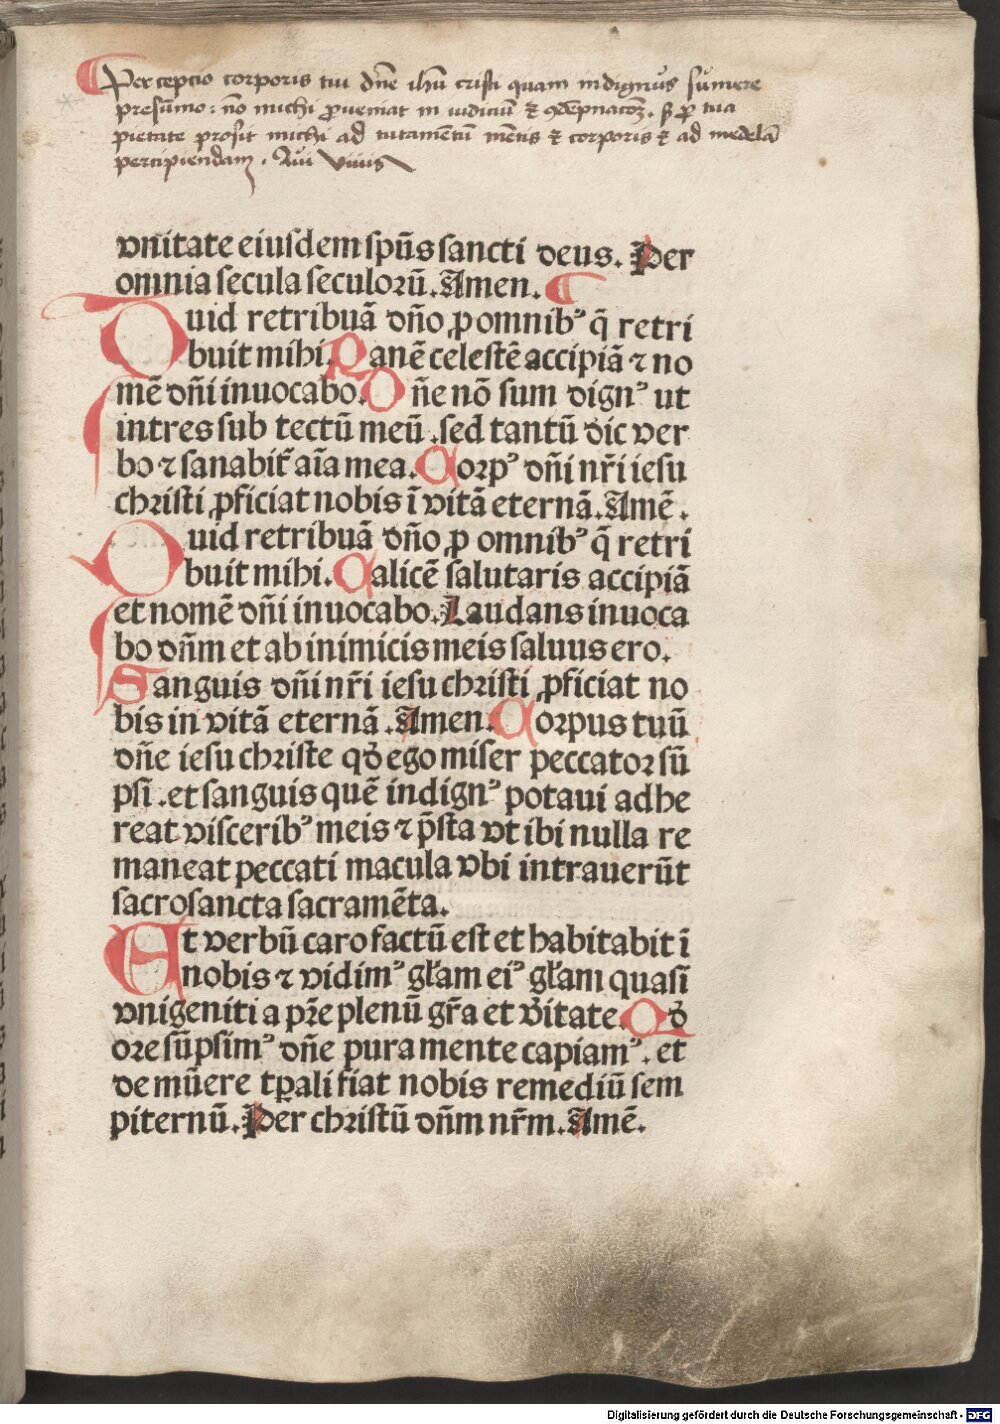 Percepcio corporis tui dn̄e ihū cristi quam indignus sumere
presūmo : nō michi ꝓueniat in iudiciū ⁊ ꝯdēpnacōꝫ . sꝫ ꝓ tua
pietate prosit michi ad tutamentū mētis ⁊ corporis ⁊ ad medelā
percipiendam . Qui viuis
vnitate eiusdem spūs sancti deus. Per
omnia secula seculorū. Amen. ¶
Quid retribuā dn̄o ꝓ omnibꝰ q̄ retri
buit mihi. Panē celestē accipiā ⁊ no
mē dn̄i inuocabo. Dn̄e nō sum dignꝰ ut
intres sub tectū meū . sed tantū dic ver
bo ⁊ sanabit᷑ aīa mea. Corpꝰ dn̄i nr̄i iesu
christi ꝓficiat nobis ī vitā eternā. Amē .
Quid retribuā dn̄o ꝓ omnibꝰ q̄ retri
buit mihi. Calicē salutaris accipiā
et nomē dn̄i inuocabo. Laudans inuoca
bo dn̄m et ab inimicis meis saluus ero.
Sanguis dn̄i nr̄i iesu christi ꝓficiat no
bis in vitā eternā . Amen. Corpus tuū
dn̄e iesu christe qđ ego miser peccator sū
psi . et sanguis quē indignꝰ potaui adhe
reat visceribꝰ meis ⁊ p̄sta vt ibi nulla re
maneat peccati macula vbi intrauerūt
sacrosancta sacramēta.
Et verbū caro factū est et habitabit ī
nobis ⁊ vidimꝰ gl̄am eiꝰ gl̄am quasi
vnigeniti a pr̄e plenū gr̄a et v̄itate. Qđ
ore sūpsimꝰ dn̄e pura mente capiamꝰ . et
de mūere tꝑali fiat nobis remediū sem
piternū. Per christū dn̄m nr̄m. Amē.
Digitalisierung gefördert durch die Deutsche Forschungsgemeinschaft - DFG